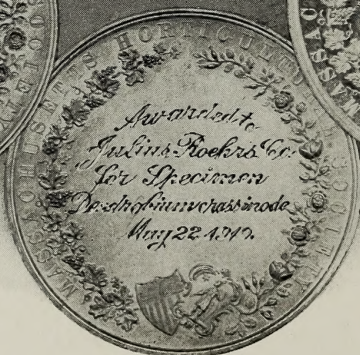 MASSACHUSETTS HORTICULTURAL SOCIETY
Awarded to
Julius Roehrs Co.
for Specimen
Dendrobium crassinode
May 22 1919.